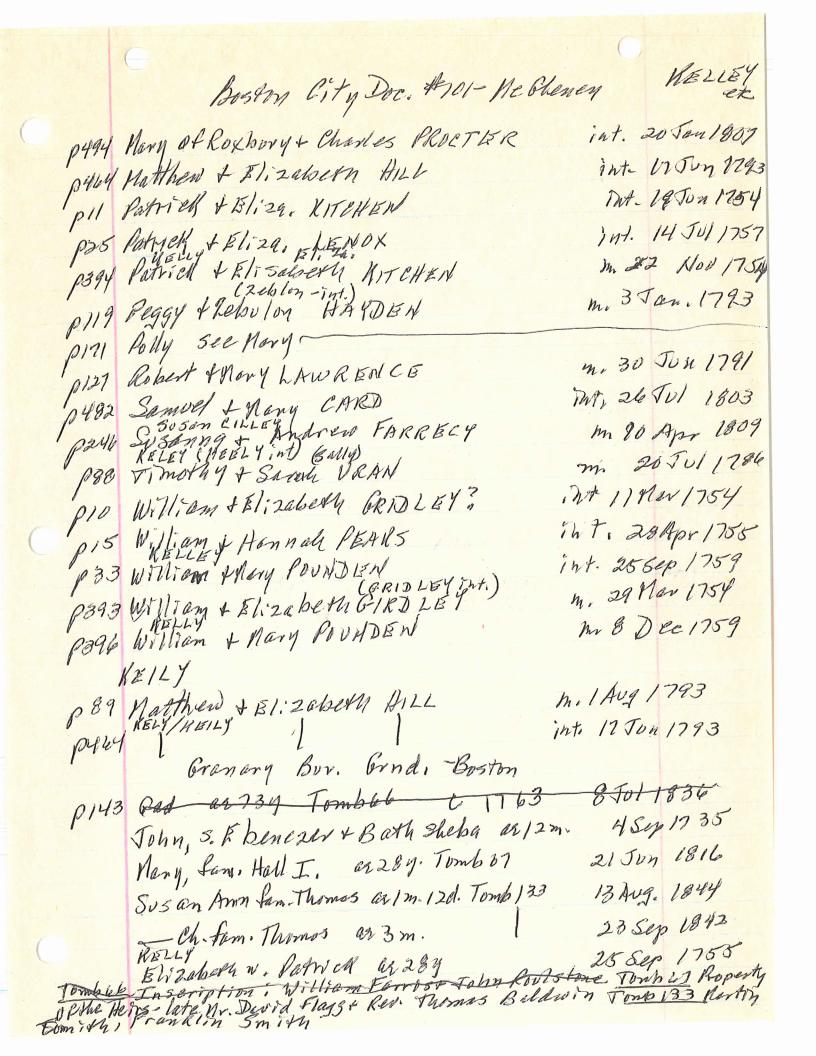 Boston City Doc. #101- McGlenen KELLEY
etc
p494 Mary of Roxbury & Charles PROCTER int. 20 Jan 1807
p464 Matthew & Elizabeth HILL int. 17 Jun 1793
p11 Patrick & Eliza. KITCHEN int. 19 Jun 1754
p25 Patrick & Eliza. LENOX int. 14 Jul 1757
KELLY Eliza.
p394 Patrick & Elisabeth KITCHEN m. 22 Nov 1754
(Zeblon-int.)
p119 Peggy & Zebulon HAYDEN m. 3 Jan. 1793
p171 Polly see Mary
p127 Robert & Mary LAWRENCE m. 30 Jun 1791
p482 Samuel & Mary CARD int. 26 Jul 1803
SUSAN CILLEY
p246 Susanna & Andrew FARRECY m 10 Apr 1809
KELEY (HEELY int) (Sally)
p88 Timothy & Sarah VRAN m. 20 Jul 1786
p10 William & Elizabeth GRIDLEY? int 11 Mar 1754
p15 William & Hannah PEARS int. 28 Apr 1755
KELLEY
p33 William & Mary POUNDEN int. 25 Sep 1759
(GRIDLEY int.)
p393 William & Elizabeth GIRDLEY m. 29 Mar 1754
KELLY
p396 William & Mary POUNDEN m 8 Dec 1759
KEILY
p89 Matthew & Elizabeth HILL m. 1 Aug 1793
KELY/KEILY
p464 int. 17 Jun 1793
Granary Bur. Grnd. - Boston
p143 ae 73y Tomb 66 1763 8 Jul 1836
John, s. Ebenezer & Bathsheba ae 12m. 4 Sep 1735
Mary, fam. Hall I. ae 28y. Tomb 67 21 Jun 1816
Susan Ann fam. Thomas ae 1m. 12d. Tomb 133 13 Aug. 1844
— Ch. fam. Thomas ae 3m. 23 Sep 1842
KELLY
Elizabeth w. Patrick ae 28y 25 Sep 1755
Tomb 66 Inscription: William Farros & John Roulstone Tomb 67 Property
of the Heirs - late Mr. David Flagg & Rev. Thomas Baldwin Tomb 133 Martin
Smith, Franklin Smith